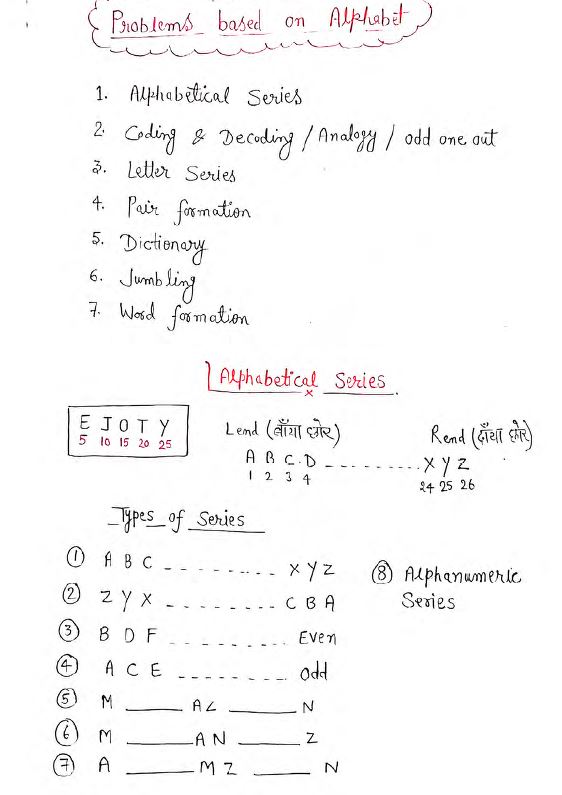 Problems based on Alphabet
1. Alphabetical Series
2. Coding & Decoding / Analogy / odd one out
3. Letter Series
4. Pair formation
5. Dictionary
6. Jumbling
7. Word formation
Alphabetical Series
E J O T Y
5 10 15 20 25
Lend (बाँया छोर)
Rend (दाँया छोर)
A B C D - - - - - - - - - X Y Z
1 2 3 4
24 25 26
Types of Series
① A B C - - - - - - - - - X Y Z
② Z Y X - - - - - - - - C B A
③ B D F - - - - - - - - - Even
④ A C E - - - - - - - - odd
⑤ M ______ AZ ______ N
⑥ M ______ A N ______ Z
⑦ A ______ M Z ______ N
⑧ Alphanumeric
Series